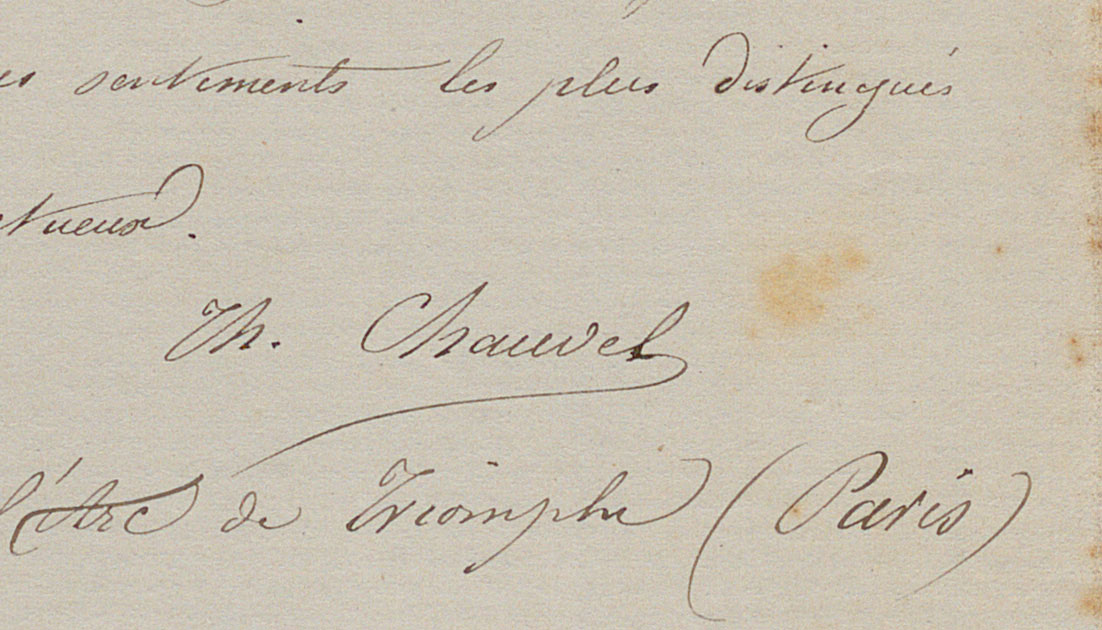 sentiments les plus distingués
Th. Chauvel
l'Arc de Triomphe (Paris)